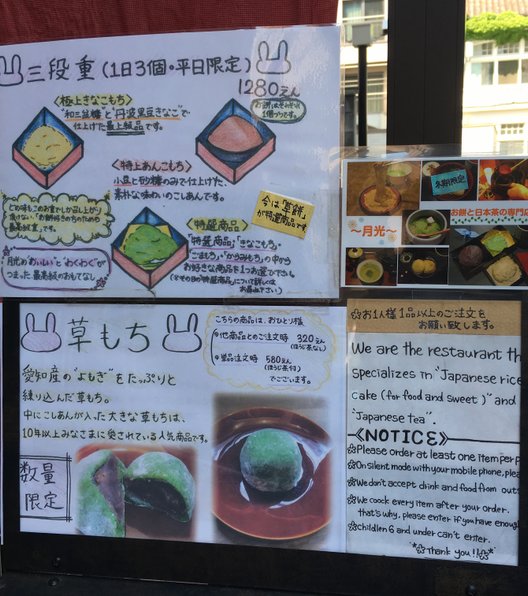 三段重(1日3個・平日限定)
1280えん
お餅はそれぞれ
1個づつです。
〈極上きなこもち〉
"和三盆糖"と"丹波黒豆きなこ"で
仕上げた最上級品です。
〈特上あんこもち〉
小豆と砂糖のみで仕上げた、
素朴な味わいのこしあんです。
今は「草餅」
が特選商品です
〈特選商品〉
「特選商品」「きなこもち」
「ごまもち」「からみもち」の中から
お好きな商品を1つお選び下さい
月光の"おいしい"と"わくわく"が
つまった最高級のおもてなし。
冬期限定
お餅と日本茶の専門
〜月光〜
草もち
愛知産の"よもぎ"をたっぷりと
練り込んだ草もち。
中にこしあんが入った大きな草もちは、
10年以上みなさまに愛されている人気商品です。
数量
限定
こちらの商品は、おひとり様
他商品とのご注文時 320えん
(ほうじ茶なし)
単品注文時 580えん
(ほうじ茶付)
でございます。
お1人様1品以上のご注文を
お願い致します。
We are the restaurant th
specializes in "Japanese rice
cake (for food and sweet)" and
"Japanese tea".
《NOTICE》
Please order at least one item per p
On silent mode with your mobile phone, plea
We don't accept drink and food from out
We coock every item after your order.
that's why, please enter if you have enoug
Childlen 6 and under can't enter.
Thank you!!